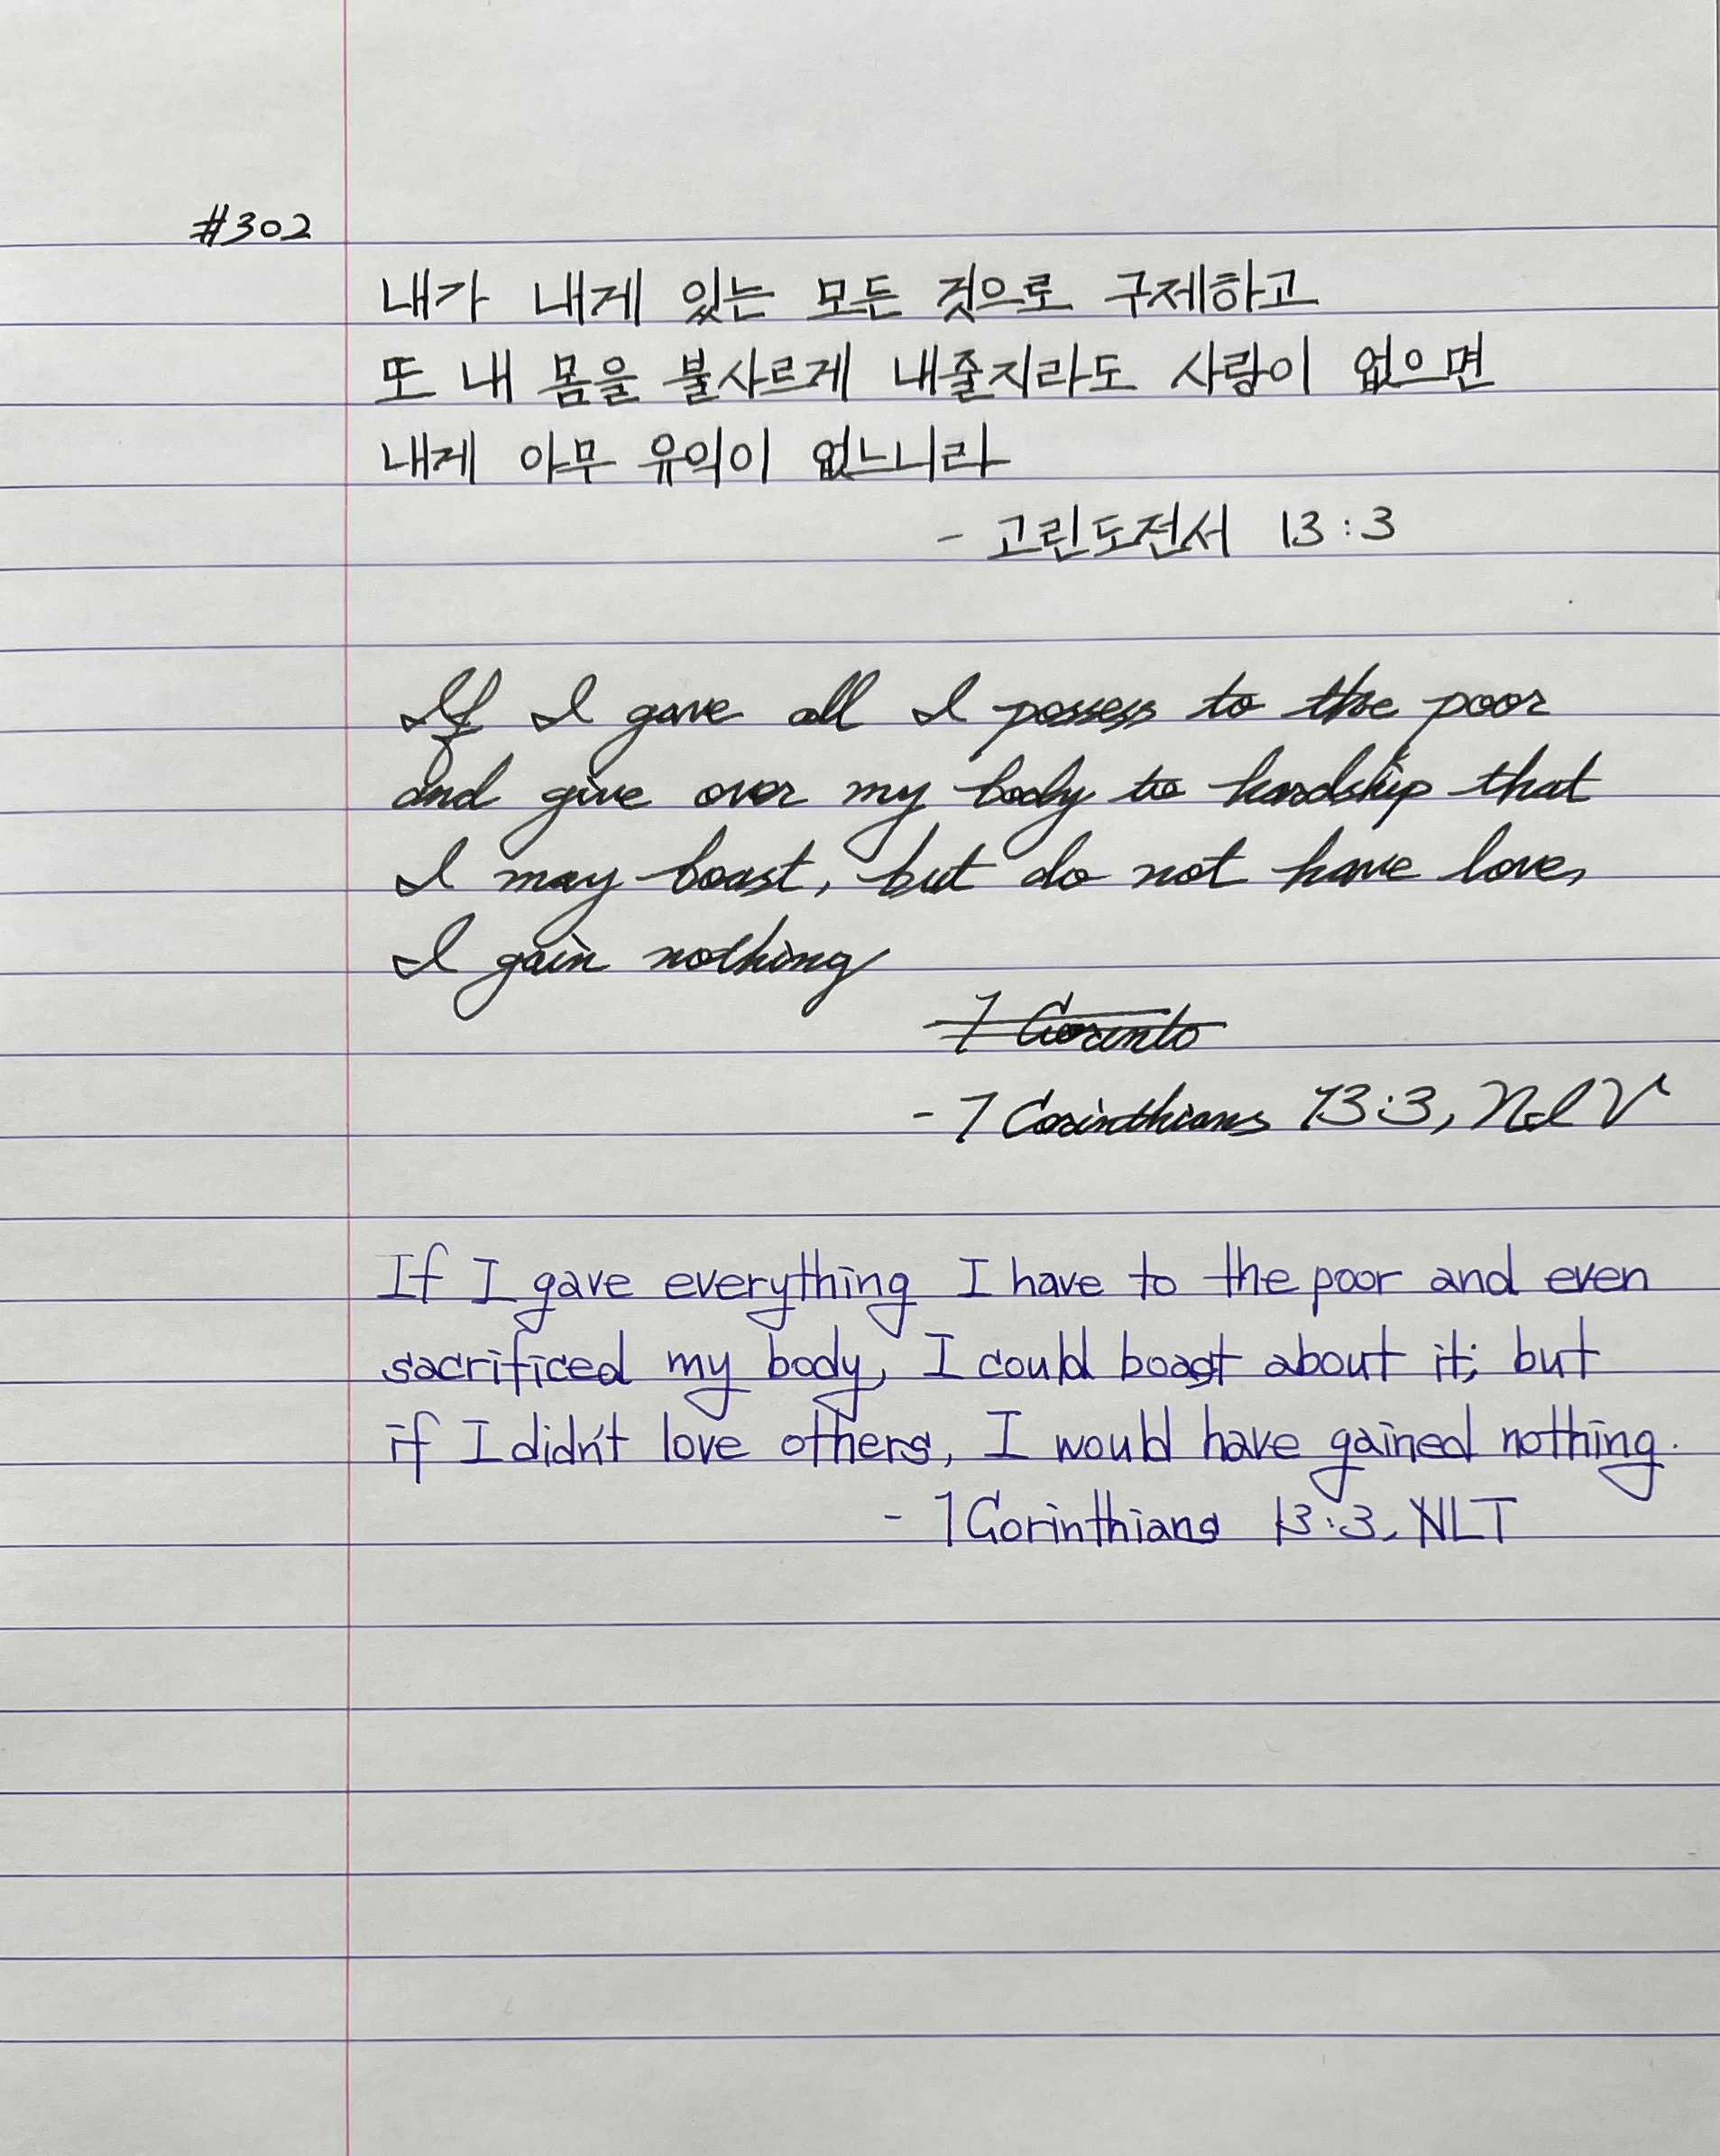 #302
내가 내게 있는 모든 것으로 구제하고
또 내 몸을 불사르게 내줄지라도 사랑이 없으면
내게 아무 유익이 없느니라
- 고린도전서 13:3
If I gave all I possess to the poor
and give over my body to hardship that
I may boast, but do not have love,
I gain nothing
- 1 Corinthians 13:3, NIV
If I gave everything I have to the poor and even
sacrificed my body, I could boast about it; but
if I didn't love others, I would have gained nothing.
- 1 Corinthians 13:3, NLT